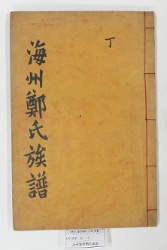 丁
海州鄭氏族譜